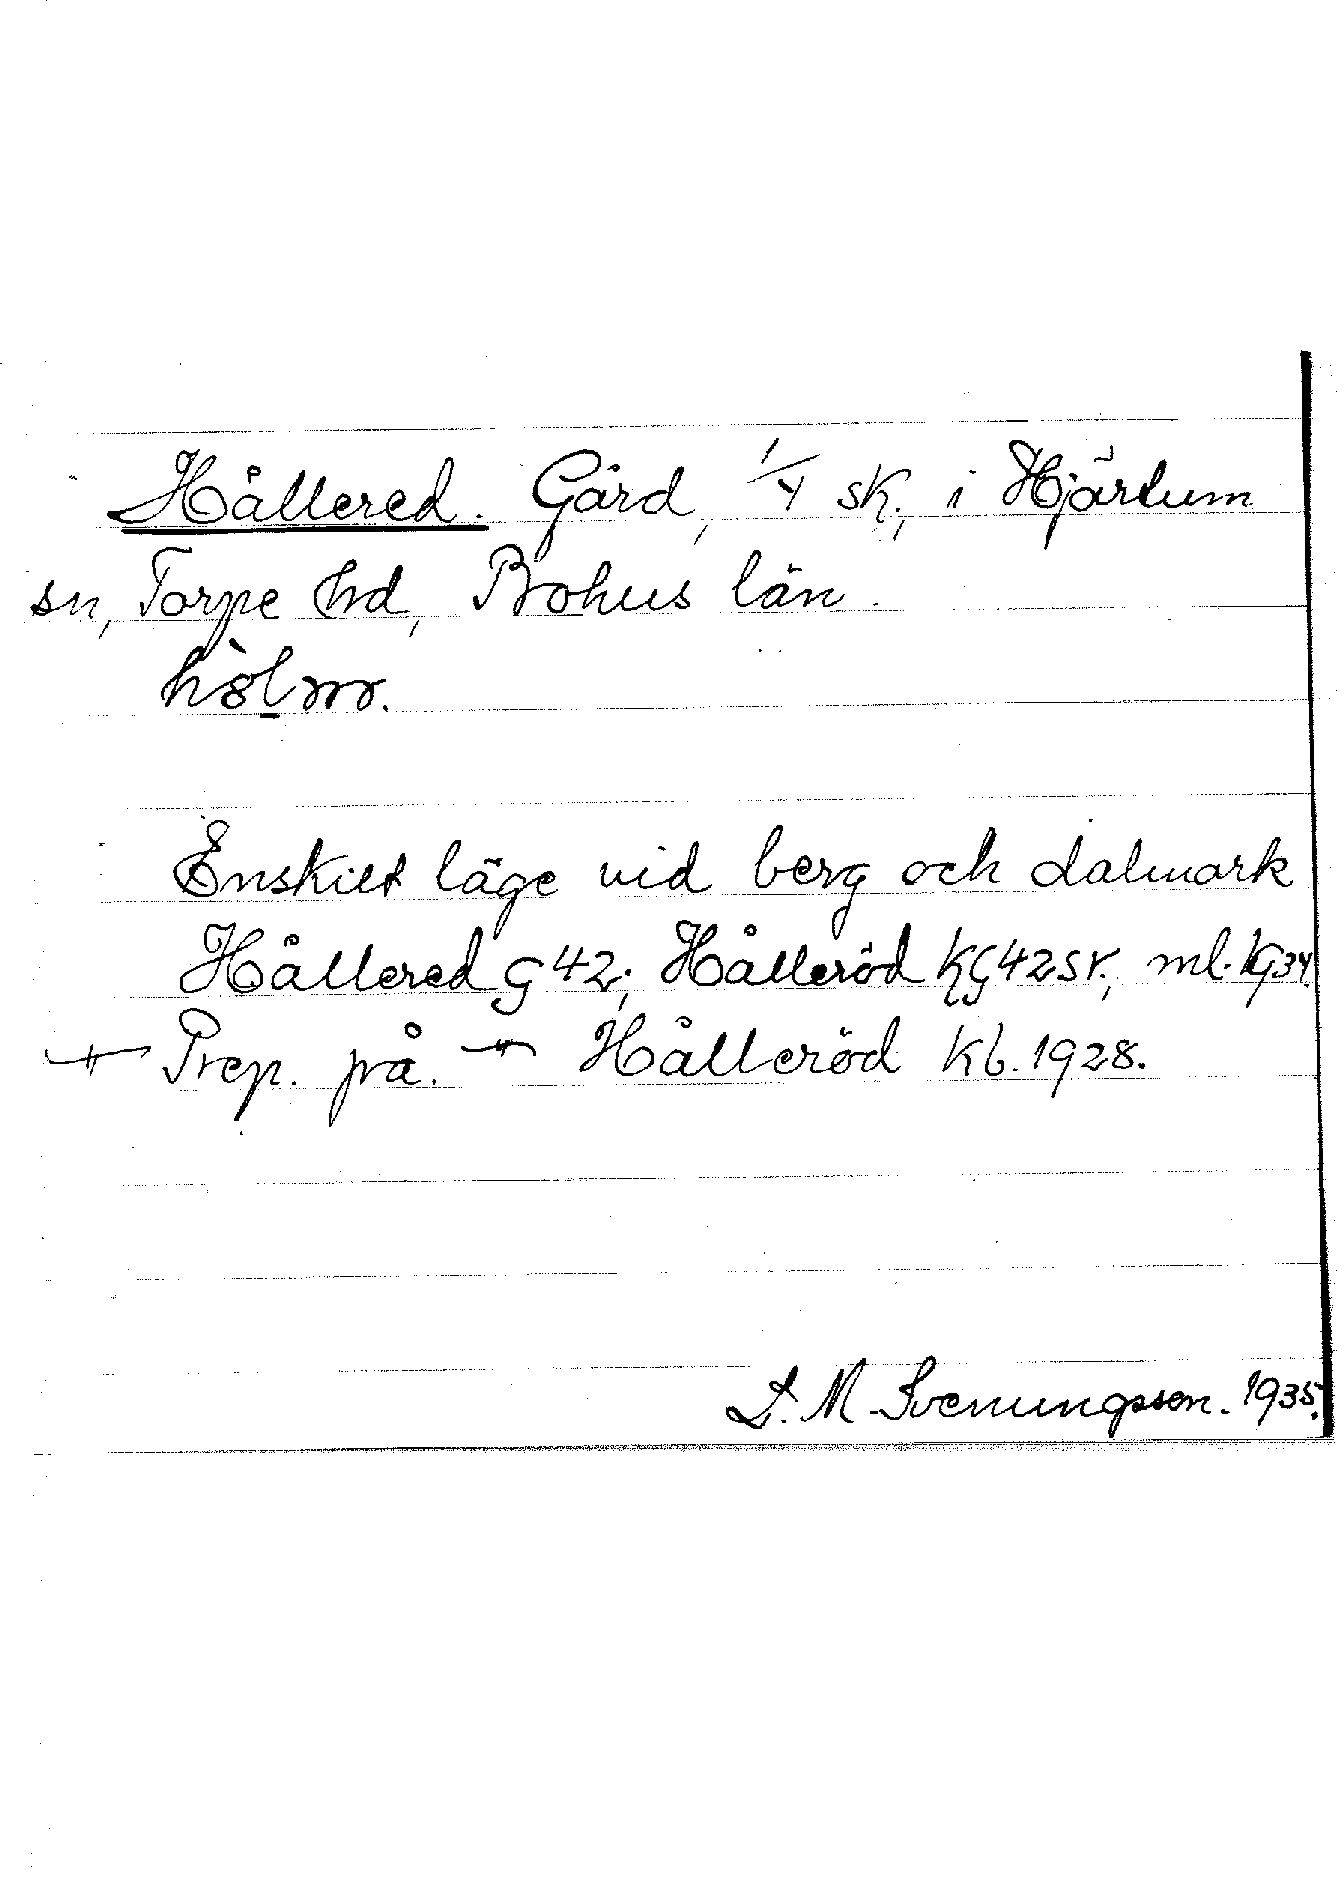 Hållered. Gård, 1/4 sk., i Hjärtum
sn, Torpe hd, Bohus län.
Enskilt läge vid berg och dalmark
Hållered G 42; Hålleröd KG 42 sk., ml. KG 34.
Prep. på. Hålleröd Kb. 1928.
D. M. Svenungsson. 1935.